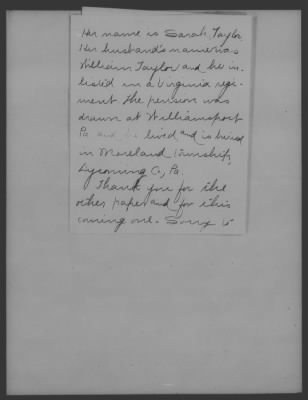 Her name is Sarah Taylor
Her husband's name was
William Taylor and he in-
listed in a Virginia regi-
ment the pension was
drawn at Williamsport
Pa and he lived and is buried
in Moreland township,
Lycoming Co, Pa.
Thank you for the
other paper and for this
coming one - Sorry to